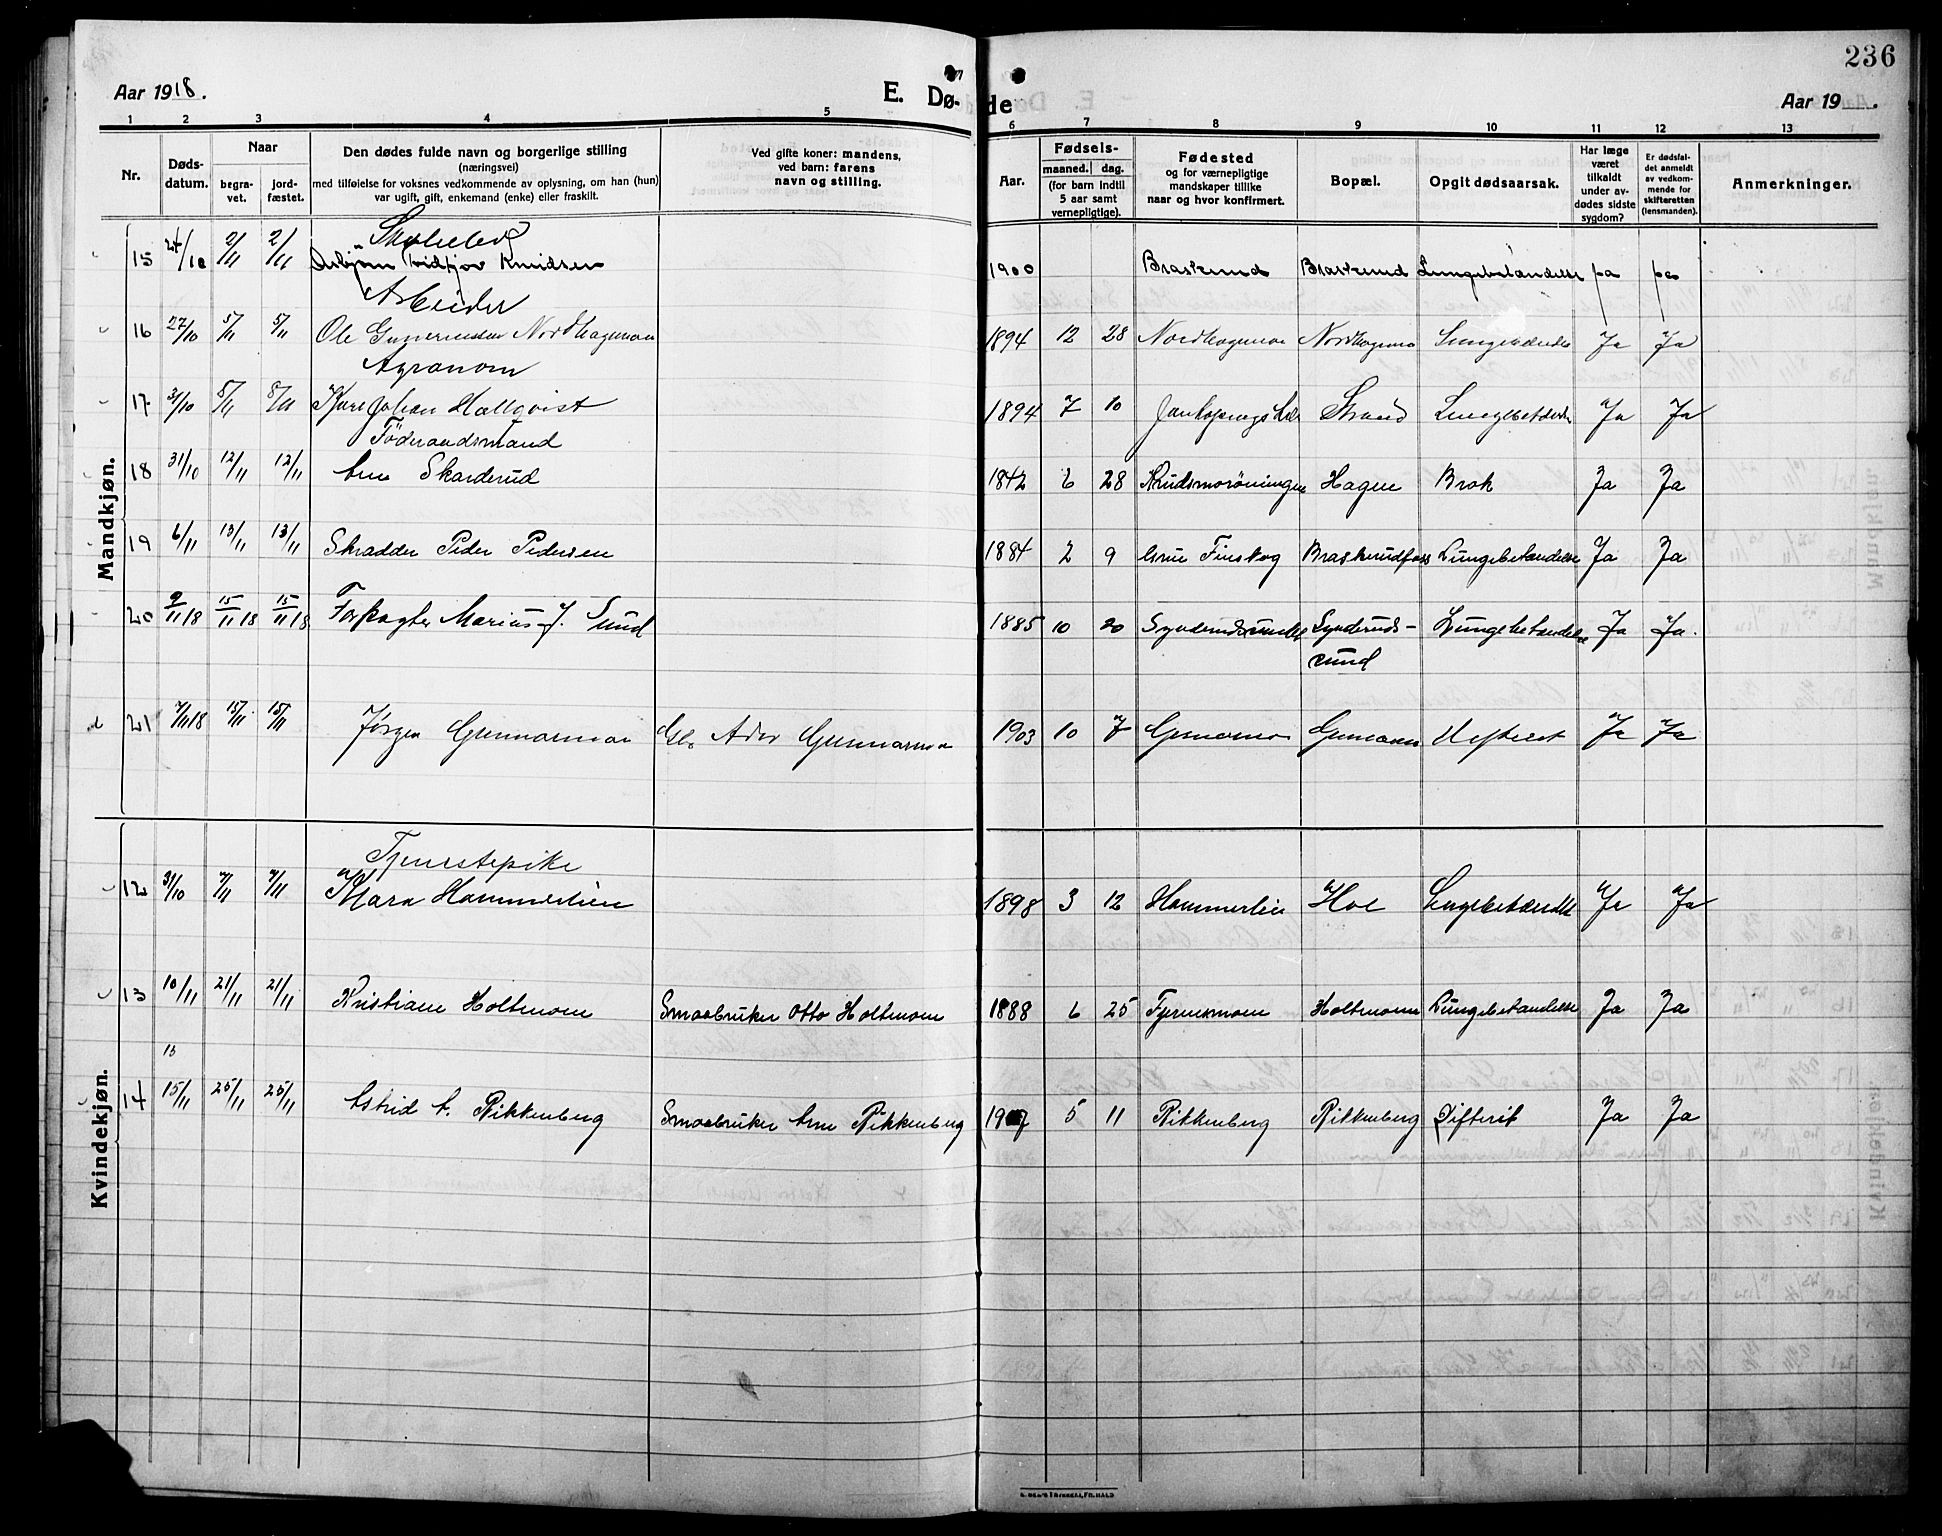 236
Aar 1918.
E. Dø-
de
Aar 19 .
1 2 3 4 5 6 7 8 9 10 11 12 13
Nr.
Døds-
datum.
Naar
begra-
vet.
jord-
fæstet.
Den dødes fulde navn og borgerlige stilling
(næringsvei)
med tilføielse for voksnes vedkommende av oplysning, om han (hun)
var ugift, gift, enkemand (enke) eller fraskilt.
Ved gifte koner: mandens,
ved barn: farens
navn og stilling.
Aar.
Fødsels-
maaned. dag.
(for barn indtil
5 aar samt
vernepligtige).
Fødested
og for værnepligtige
mandskaper tillike
naar og hvor konfirmert.
Bopæl.
Opgit dødsaarsak.
Har læge
været
tilkaldt
under av-
dødes sidste
sygdom?
Er dødsfal-
det anmeldt
av vedkom-
mende for
skifteretten
(lensmanden).
Anmerkninger.
Mandkjøn.
15 24/10 2/11 2/11 Asbjørn Knudsen 1900 Braskerud Braskerud Lungebetændelse ja ja
Arbeider
16 27/10 5/11 5/11 Ole Nordhagamoen 1894 12 28 Ja Ja
Agranom
17 31/10 8/11 8/11 Johan Hallqvist 1894 7 10 Strand Ja Ja
Föderaadsmand
18 31/10 12/11 12/11 Arne Skarderud 1842 6 28 Hagen Brok Ja Ja
19 6/11 13/11 13/11 Skradder Peder Pedersen 1884 2 9 Grue Finskog Braskerudfoss Lungebetændelse Ja Ja
20 9/11 18 15/11 18 15/11 18 Forpagter Marius J. Sund 1885 10 20 Lynderuds- Lungebetændelse Ja Ja.
sund
21 7/11 18 15/11 15/11 Jørgen Gunnarmoen Gunnarmoen 1903 10 7 Ja Ja
Kvindekjøn.
Tjenestepike
12 31/10 7/11 7/11 Klara Hammerlien 1898 3 12 Hammerlien Hol Lungebetændelse Ja Ja
13 10/11 21/11 21/11 Kristiane Holtmoen Smaabruker Otto Holtmoen 1888 6 25 Tjernsmoen Holtmoen Lungebetændelse Ja Ja
13
14 15/11 25/11 25/11 Astrid A. Rikkenberg Smaabruker Arne Rikkenberg 1907 5 11 Rikkenberg Rikkenberg Difterit Ja Ja